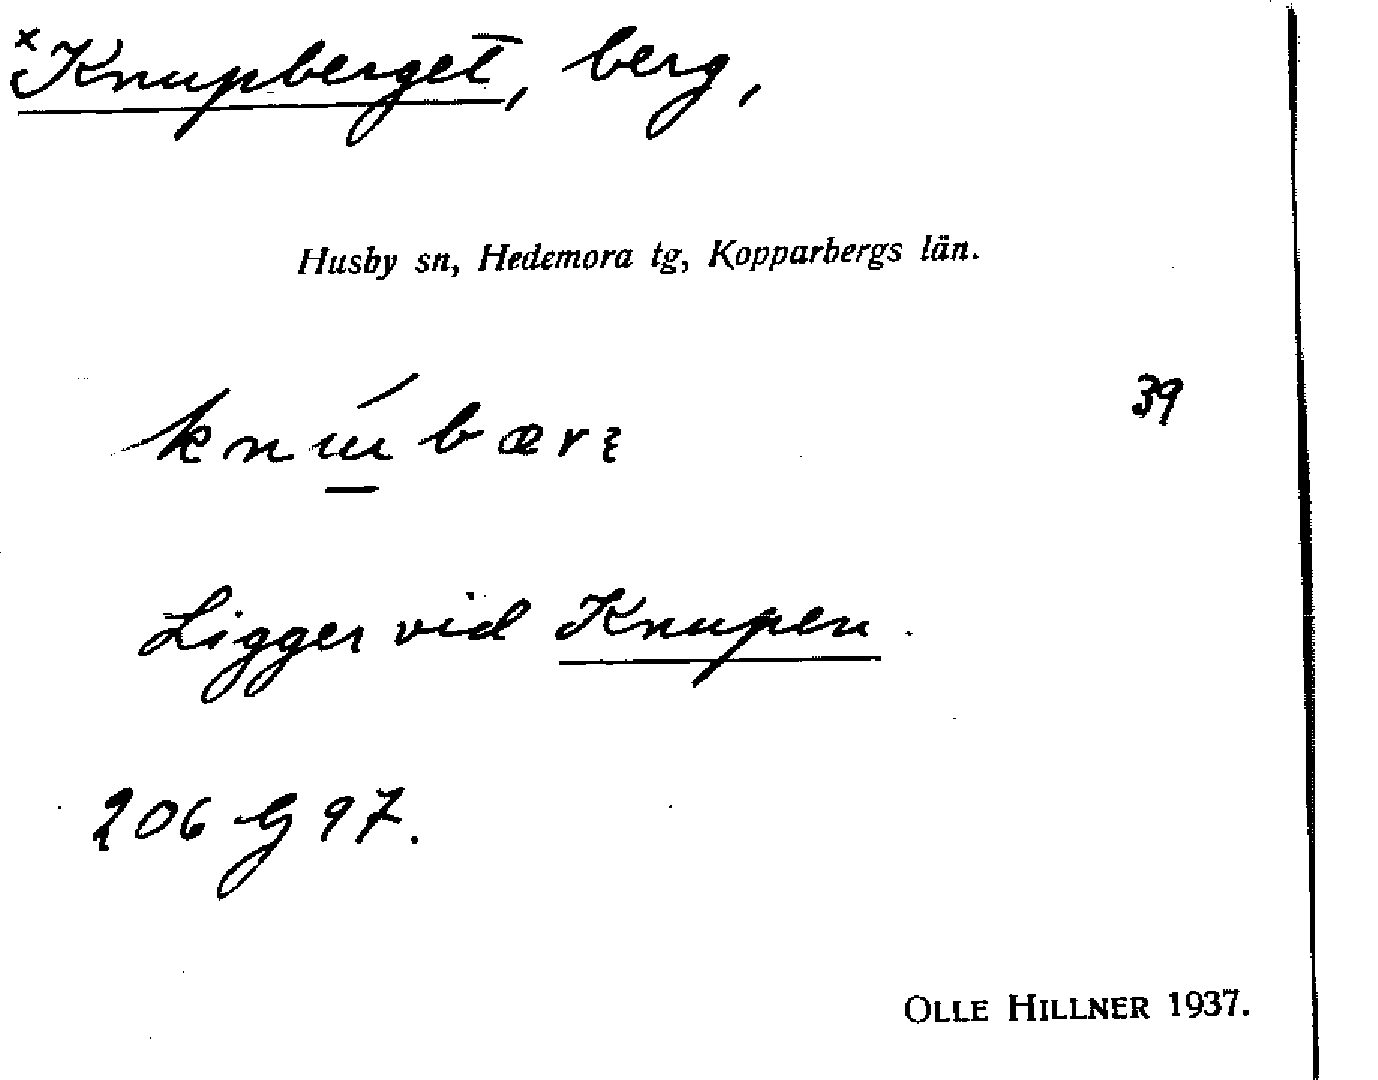 ×Knupberget, berg,
Husby sn, Hedemora tg, Kopparbergs län.
39
Ligger vid Knupen.
206 G 97.
OLLE HILLNER 1937.